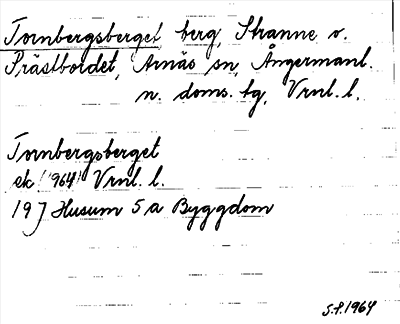 Tornbergsberget, berg, Stranne o.
Prästbordet, Arnäs sn, Ångermanl.
n. doms. tg, Vrnl. l.
Tornbergsberget
ek. 1964 Vrnl. l.
19 J Husum 5 a Byggdom
S.P. 1964